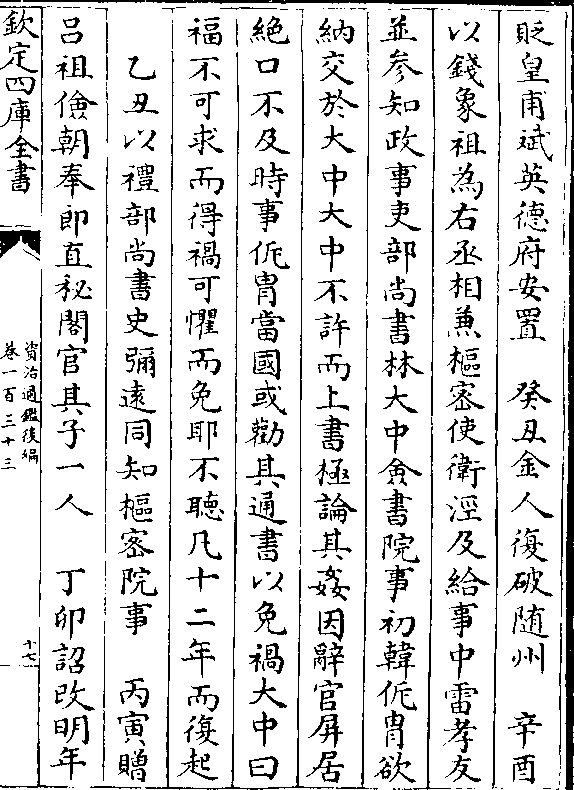 貶皇甫斌英德府安置　癸丑金人復破随州　辛酉
以錢象祖為右丞相兼樞密使衛涇及給事中雷孝友
並參知政事吏部尚書林大中僉書院事初韓侂胄欲
納交於大中大中不許而上書極論其姦因辭官屏居
絶口不及時事侂胄當國或勸其通書以免禍大中曰
福不可求而得禍可懼而免耶不聽凡十二年而復起
乙丑以禮部尚書史彌遠同知樞密院事　丙寅贈
吕祖儉朝奉郎直祕閣官其子一人　丁卯詔改明年
欽定四庫全書
資治通鑑後編
卷一百三十三
十七